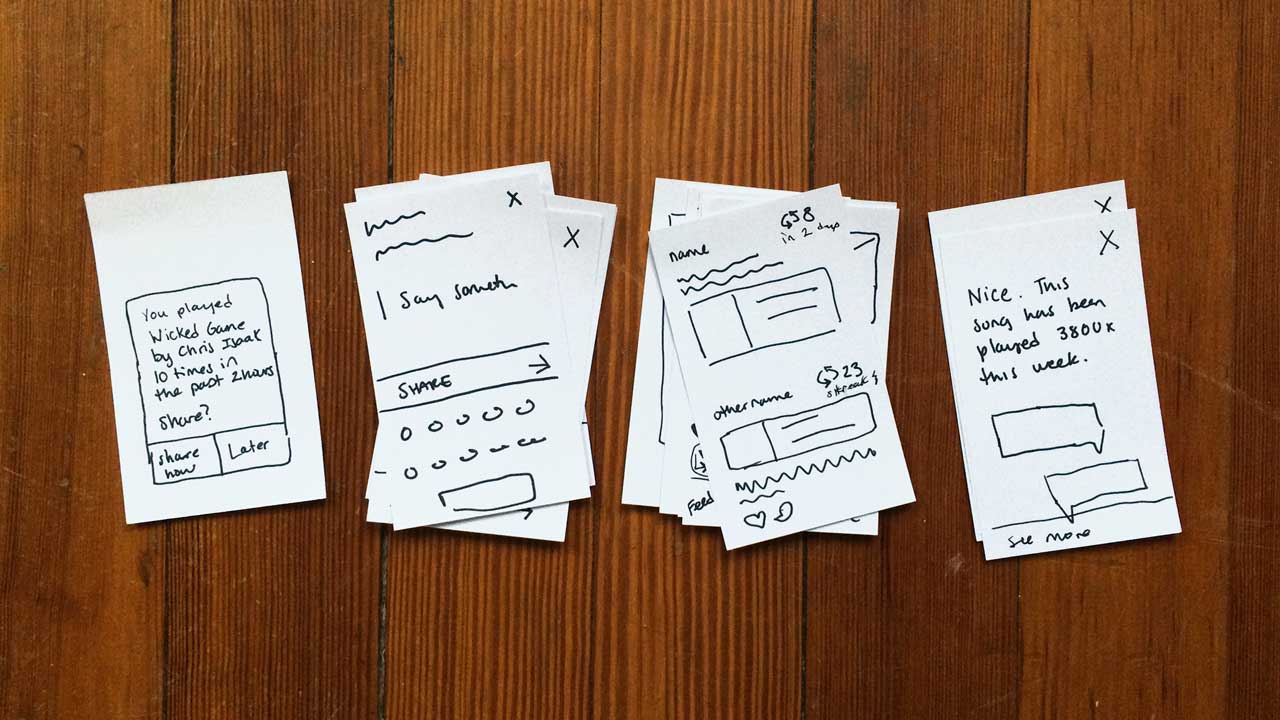 You played
Wicked Game
by Chris Isaak
10 times in
the past 2hours
Share?
share
now
Later
X
X
Say someth
SHARE
58
in 2 days
name
23
othername
Feed
X
X
Nice. This
song has been
played 3800x
this week.
see more